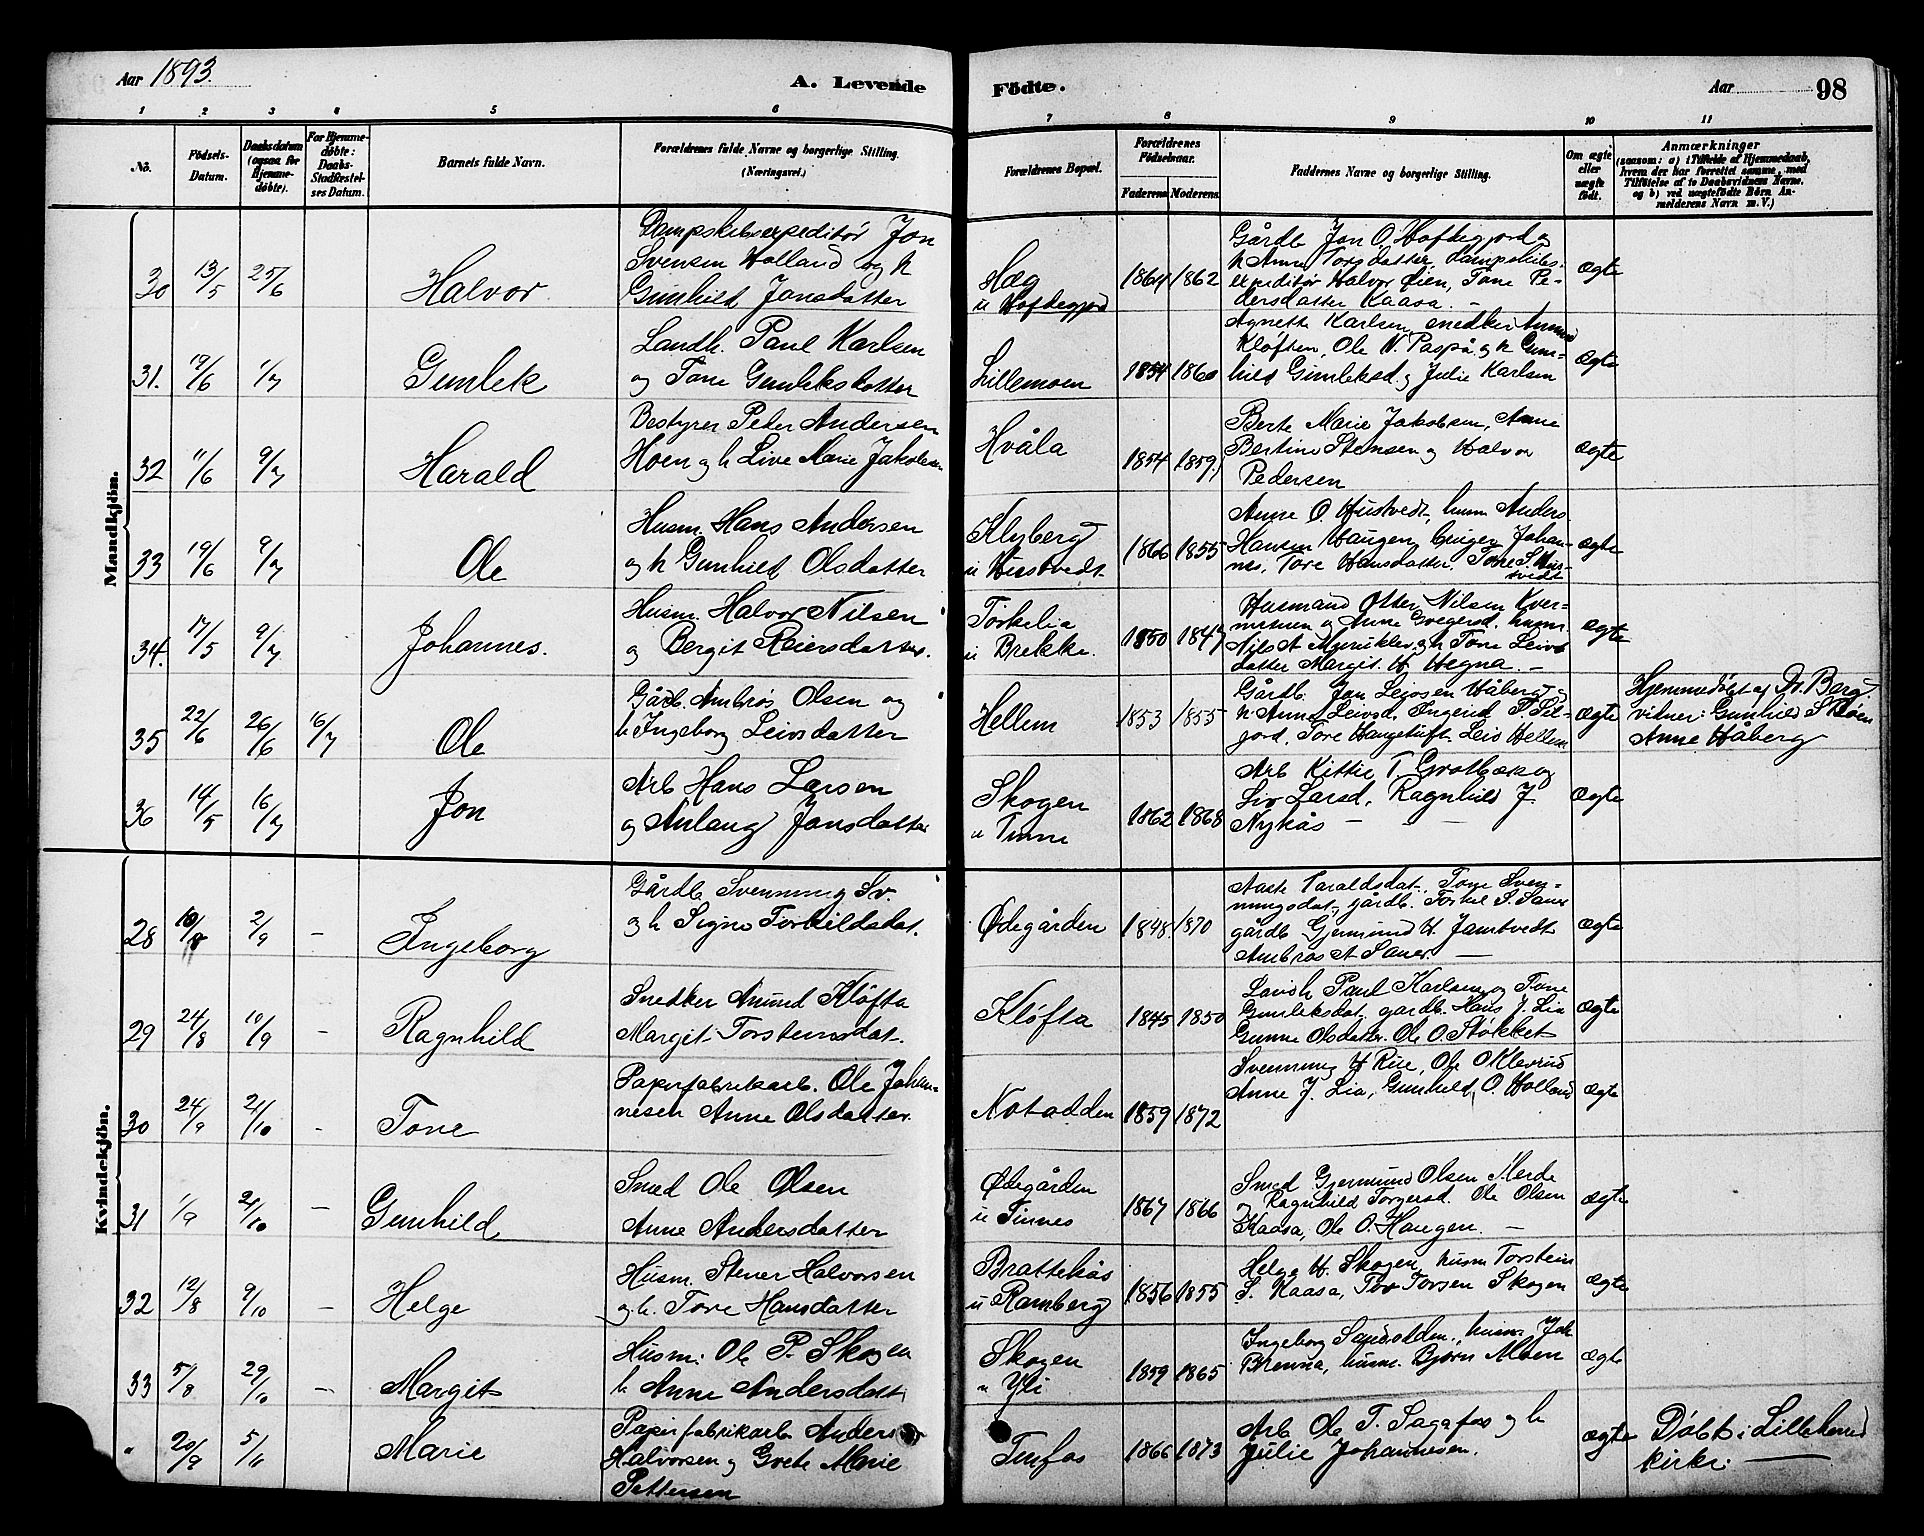 Aar 1893.
A. Levende Födte.
Aar 98
1 2 3 4 5 6 7 8 9 10 11
No.
Födsels-Datum.
Daabsdatum (ogsaa for Hjemme-døbte).
For Hjemme-døbte: Daabs-Stadfæstelses Datum.
Barnets fulde Navn.
Forældrenes fulde Navne og borgerlige Stilling. (Næringsvei.)
Forældrenes Bopæl.
Forældrenes Födselsaar.
Faderens Moderens
Faddernes Navne og borgerlige Stilling.
Om ægte eller uægte født.
Anmærkninger
(saasom: a) i Tilfælde af Hjemmedaab,
hvem der har forrettet samme, med
Tilföielse af to Daabsvidners Navne.
og b) ved uægtefødte Börn An-
melderens Navn m. V.)
Mandkjön.
30 13/5 25/6 Halvor
Dampskibsexpeditør Jon
Svensen Holland og h
Gunhild Jonsdatter
Hæg
u Hoftegjord
1864 1862
Gårdb. Jon O. Hoftegjord og
h Anne Torsdatter, Dampskibs-
expeditør Halvor Øien, Tone Pe-
dersdatter Kaasa. —
ægte
31. 19/6 1/7 Gunlek
Landh. Paul Karlsen
og Tone Gunleksdatter
Lillemoen
1854 1860
Agnette Karlsen, snedker Anund
Kløften, Ole N. Paspå og h Gun-
hild Gunleksd. og Julie Karlsen
ægte
32 11/6 9/7 Harald
Bestyrer Peder Andersen
Hoen og h Live Marie Jakobsen
Hvåla
1854 1859
Berte Marie Jakobsen, Anne
Bertine Stensen og Halvor
Pedersen
ægte
33 19/6 9/7 Ole
Husm. Hans Andersen
og h Gunhild Olsdatter
Klyberg
u Hustvedt
1866 1855
Anne O. Hustvedt, husm Anders
Hansen Haugen, Johan-
nes, Tore Hansdatter. Tone S. Hus-
tvedt
ægte
34. 17/5 9/7 Johannes.
Husm. Halvor Nilsen
og Bergit Reiersdatter.
Torkelia
u Brekke.
1850 1847
Husmand Otter Nilsen Kver-
nmoen og Anne Gregersd. husm.
Nils A og h Tone Leivs
datter Margit H Hegna. —
ægte
35 22/6 26/6 16/7 Ole
Gårdb. Ambrøs Olsen og
h Ingeborg Leivsdatter
Hellem
1853 1855
Gårdb. Jon Leivsen Håberg og
h Anne Leivsd, Ingerid P. Lil-
jord, Tore Haugetuft. Leiv Hellem
ægte
Hjemmedøbt af Dr. Berg
vitner: Gunhild S Moen
Anne Håberg
36 14/5 16/7 Jon
Arb Hans Larsen
og Anlaug Jonsdatter
Skogen
u Tinne
1862 1868
Arb Kittil T. Grotbæk og
Liv Larsd, Ragnhild J.
Nykås — —
ægte
Kvindekjön.
28 10/8 2/9 – Ingeborg
Gårdb Svennung Sv.
og h Signe Torkildsdat.
Ødegården
1848. 1870
Aaste Taraldsdat. Tone Sven-
nungsdat, gårdb. Torkel S. Saner
gårdb Gjermund H Jamtvedt
Ambrøs A Saner. —
ægte
29 24/8 10/9 – Ragnhild
Snedker Anund Kløfta
Margit Torsteinsdat.
Kløfta
1845 1850
Landh Paul Karlsen og Tone
Gunleksdat, gardb. Hans J. Lia
Gunne Olsdatter. Ole O. Stokket
ægte
30 24/9 21/10 - Tone
Paperfabrikarb. Ole Johan-
nesen Anne Olsdatter
Notodden
1859 1872
Svennung H Rue, Ole O Kleverud
Anne J. Lia, Gunhild O. Holland
ægte
31 1/9 21/10 – Gunhild
Smed Ole Olsen
Anne Andersdatter
Ødegården
u Tinnes
1867 1866
Smed Gjermund Olsen Merde
og Ragnhild Torgersd. Ole Olsen
Kaasa, Ole O. Haugen. —
ægte
32 12/8 9/10 – Helge
Husm. Stener Halvorsen
og h. Tore Hansdatter
Brattekås
u Ramberg
1856 1855
Helge H. Skogen, husm Torstein
S. Kaasa, Tov Torsen Skogen
ægte
33 5/8 29/10 – Margit
Husm: Ole P. Skogen
h Anne Andersdatt
Skogen
u Yli
1859 1865
Ingeborg Sandodden, husm. Joh
Brenna, husm. Bjørn Moen
ægte
20/9 5/11 Marie
Paperfabrikarb Anders
Halvorsen og Grete Marie
Pettersen
Tinfos
1866 1873
Arb Ole T. Sagafos og h
Julie Johannesen.
ægte
Døbt i Lilleherred
kirke: —